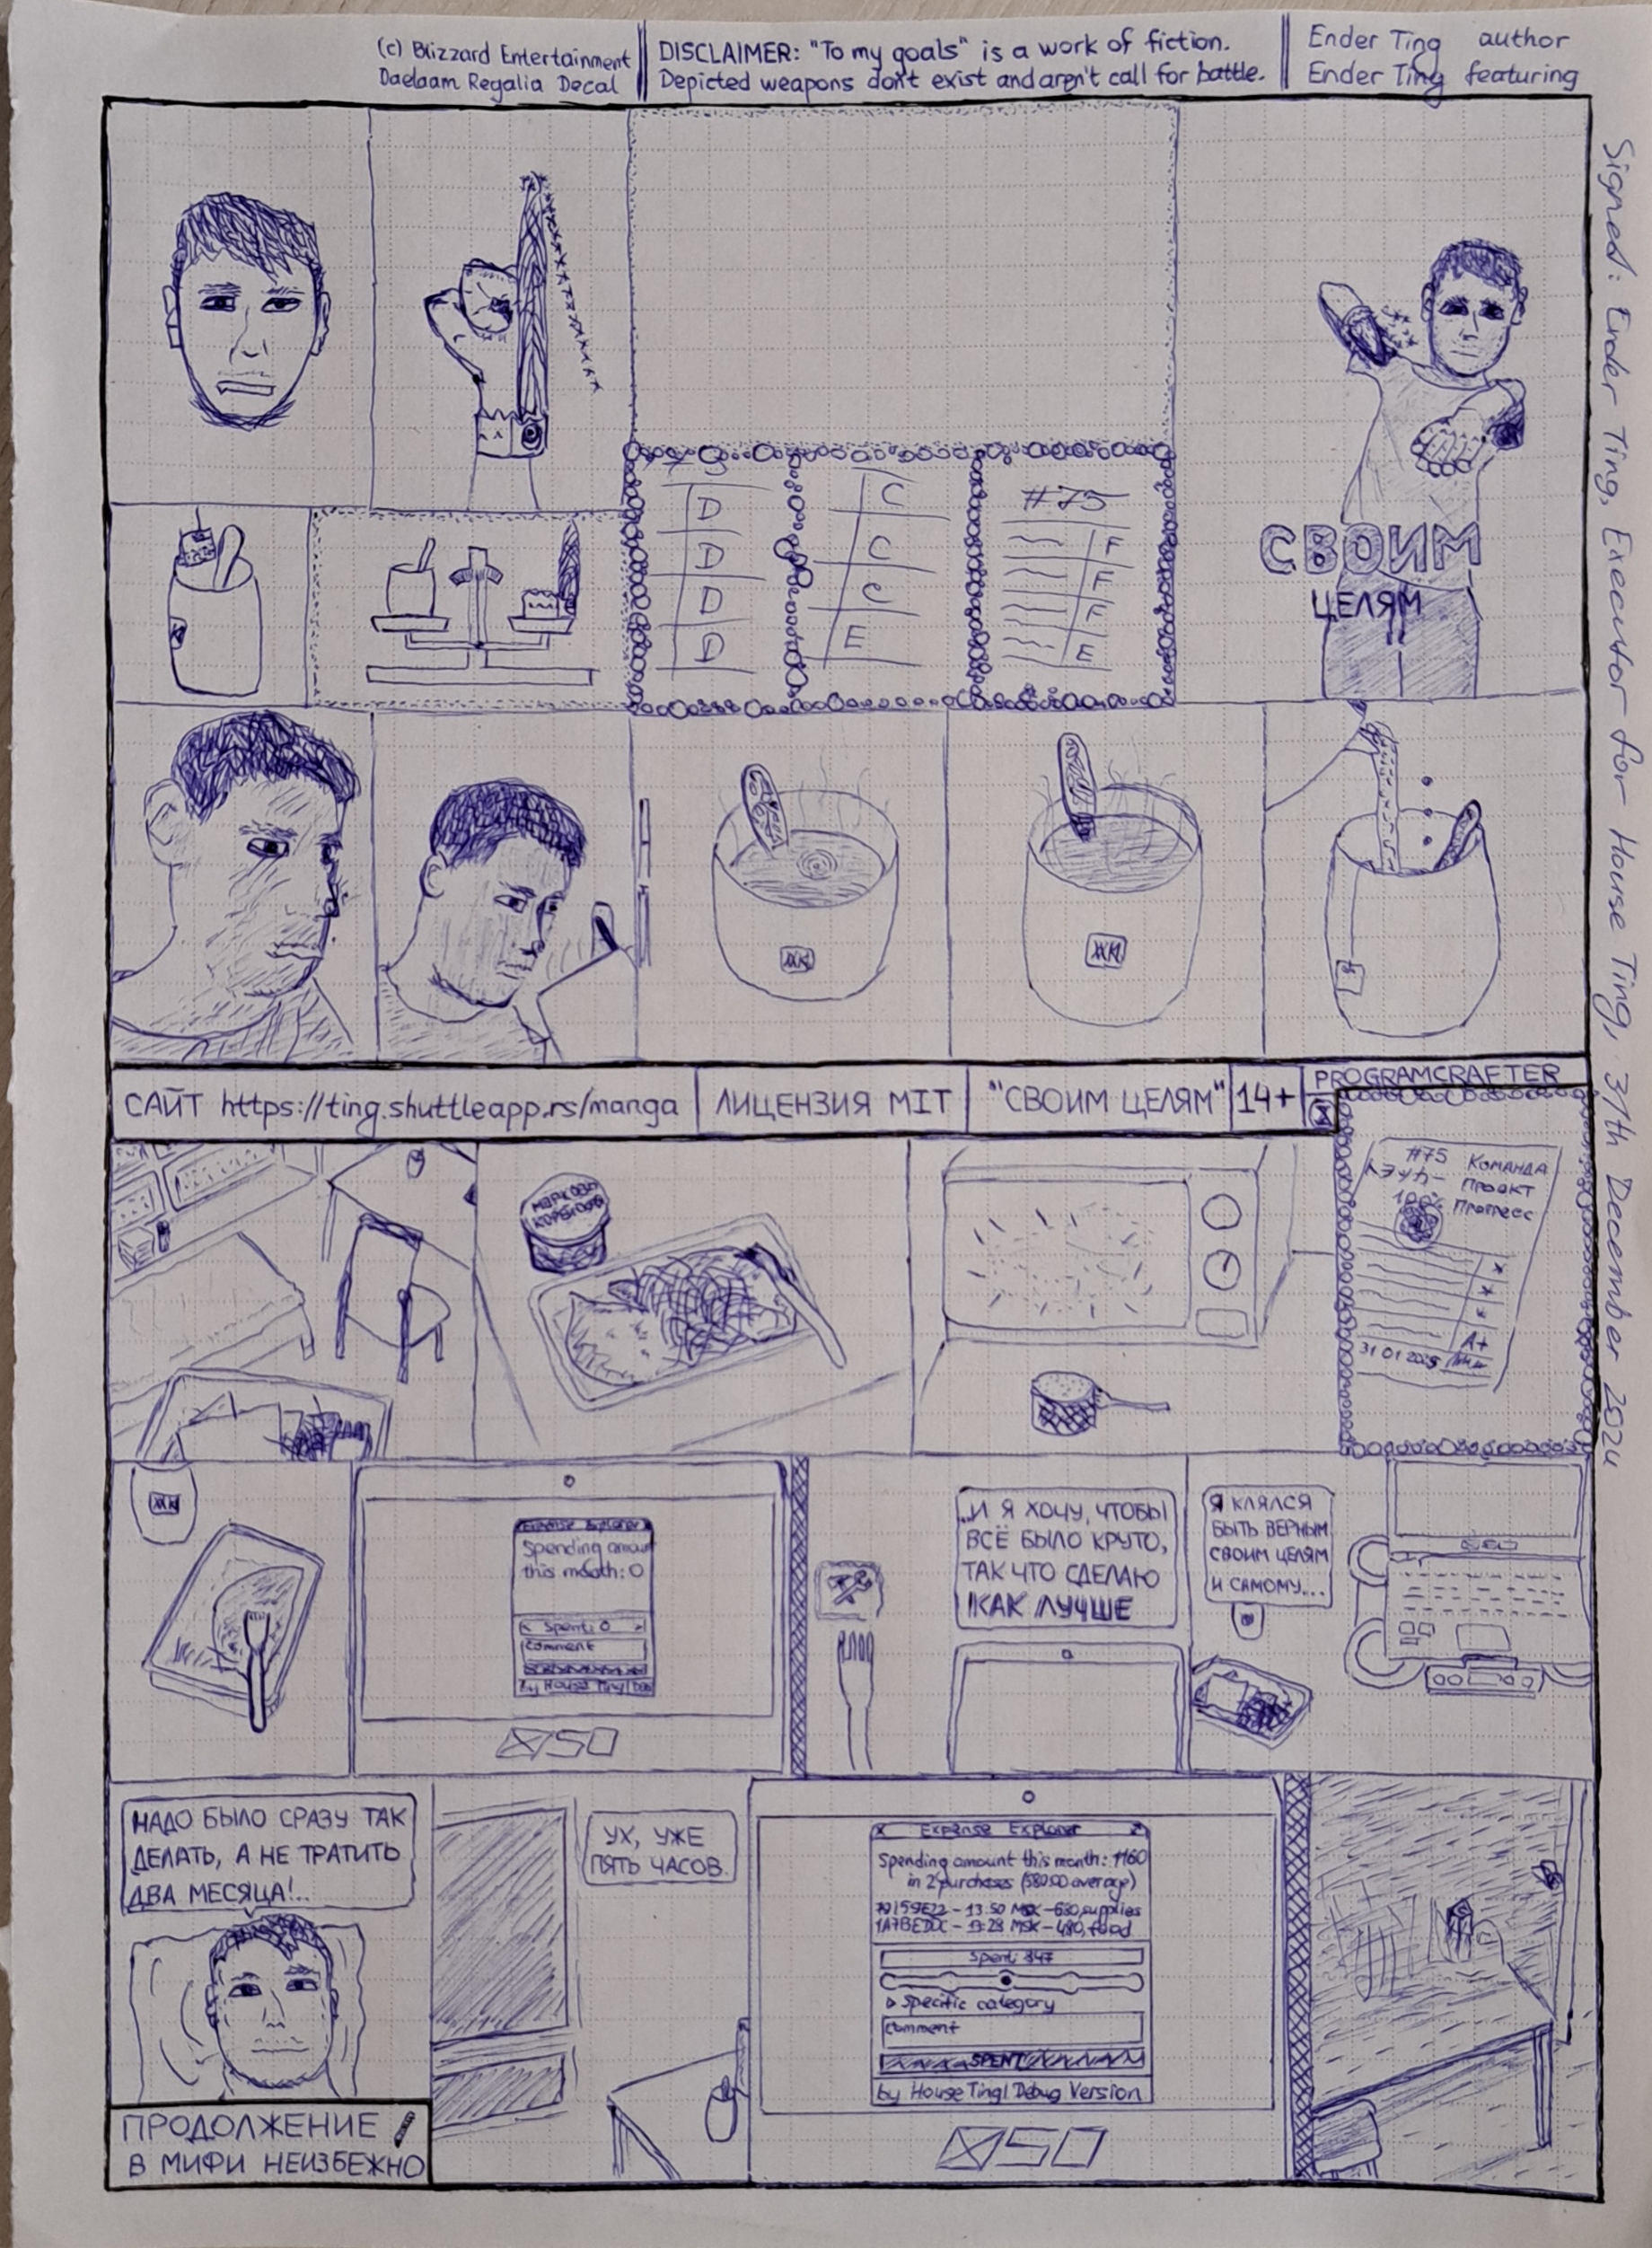 (c) Blizzard Entertainment
Daelaam Regalia Decal
DISCLAIMER: "To my goals" is a work of fiction.
Depicted weapons don't exist and aren't call for battle.
Ender Ting author
Ender Ting featuring
Signed: Ender Ting, Executor for House Ting, 31th December 2024
D
D
D
D
C
C
C
E
#75
F
F
F
E
СВОИМ
ЦЕЛЯМ
САЙТ https://ting.shuttleapp.rs/manga
ЛИЦЕНЗИЯ MIT
"СВОИМ ЦЕЛЯМ"
14+
PROGRAMCRAFTER
МОРКОВЬ
#75
Команда
Проект
100%
Прогресс
A+
31 01 2025
Expense Explorer
Spending amou
this month: 0
< Spent: 0 >
Comment
by House Ting|
..И Я ХОЧУ, ЧТОБЫ
ВСЁ БЫЛО КРУТО,
ТАК ЧТО СДЕЛАЮ
КАК ЛУЧШЕ
Я КЛЯЛСЯ
БЫТЬ ВЕРНЫМ
СВОИМ ЦЕЛЯМ
И САМОМУ...
НАДО БЫЛО СРАЗУ ТАК
ДЕЛАТЬ, А НЕ ТРАТИТЬ
ДВА МЕСЯЦА!..
УХ, УЖЕ
ПЯТЬ ЧАСОВ.
Expense Explorer
Spending amount this month: 1160
in 2 purchases (580.00 average)
- 13:50 MSK - 680, supplies
- 13:28 MSK - 480, food
Spent: 347
▷ Specific category
Comment
SPENT
by House Ting| Debug Version
ПРОДОЛЖЕНИЕ
В МИФИ НЕИЗБЕЖНО